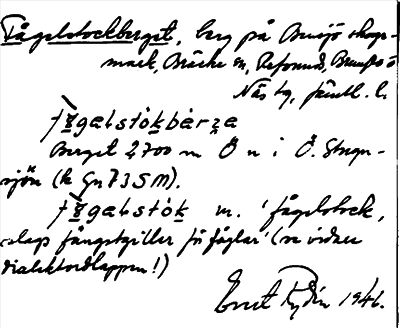 Fågelstockberget, berg på Bensjö skogs-
mark, Bräcke sn, Refsunds, Brunflo o
Näs tg, Jämtl. l.
fɤgəlstòkbàrʒa
Berget 2,700 m Ö n i Ö. Stugu-
sjön (k Gn 73 SM).
fɤgəlstòk m. 'fågelstock,
slags fångstgiller för fåglar' (se vidare
dialektordlappen!)
Ernst Rydin 1946.